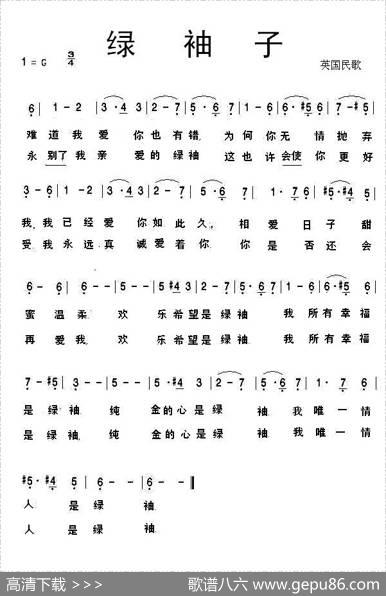 绿 袖 子
1=G 3/4
英国民歌
6 | 1-2 | 3·4 3 | 2-7 | 5·6 7 | 1-6 | 6·#5 6 | 7-5 |
难道我爱 你也有错, 为何你无 情抛弃
永别了我亲 爱的绿袖 这也许会使你更好
3-6 | 1-2 | 3·4 3 | 2-7 | 5·6 7 | 1·7 6 | #5·#4 5 |
我,我已经爱 你如此久, 相爱日子甜
受,我永远真 诚爱着你, 你是否还会
6-6 | 6-- | 5-- | 5·#4 3 | 2-7 | 5·6 7 | 1-6 | 6·#5 6 |
蜜温柔. 欢 乐希望是绿袖 我所有幸福
再爱我. 欢 乐希望是绿袖. 我所有幸福
7-#5 | 3-- | 5-- | 5·#4 3 | 2-7 | 5·6 7 | 1·7 6 |
是绿袖. 纯 金的心是绿 袖.我唯一情
是绿袖. 纯 金的心是绿 袖.我唯一情
#5·#4 5 | 6-- | 6-‖
人 是绿 袖.
人 是绿 袖.
高清下载 >>>
歌谱八六 www.gepu86.com